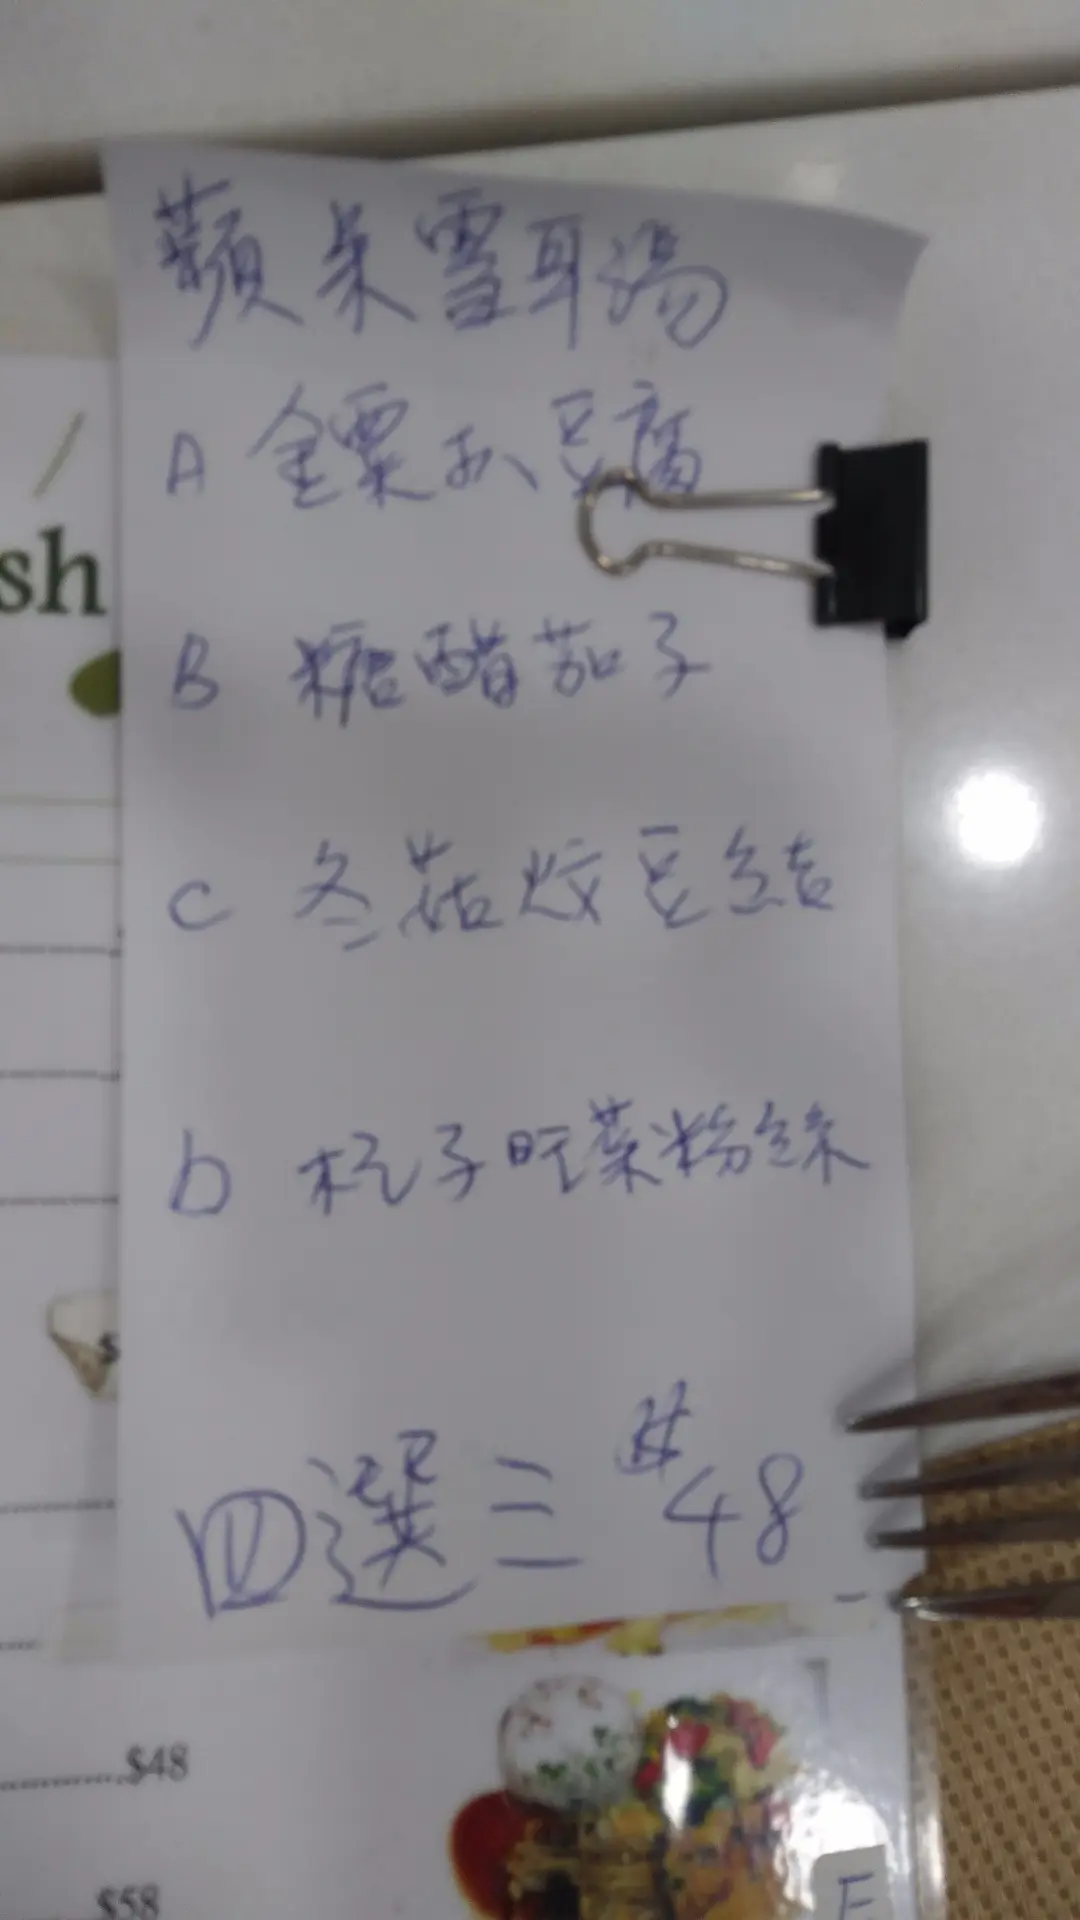 蘋果雪耳湯
A 金粟扒豆腐
sh
B 糖醋茄子
C 冬菇炆豆結
D 杞子旺菜粉絲
四選三 $48
$48
$58
F